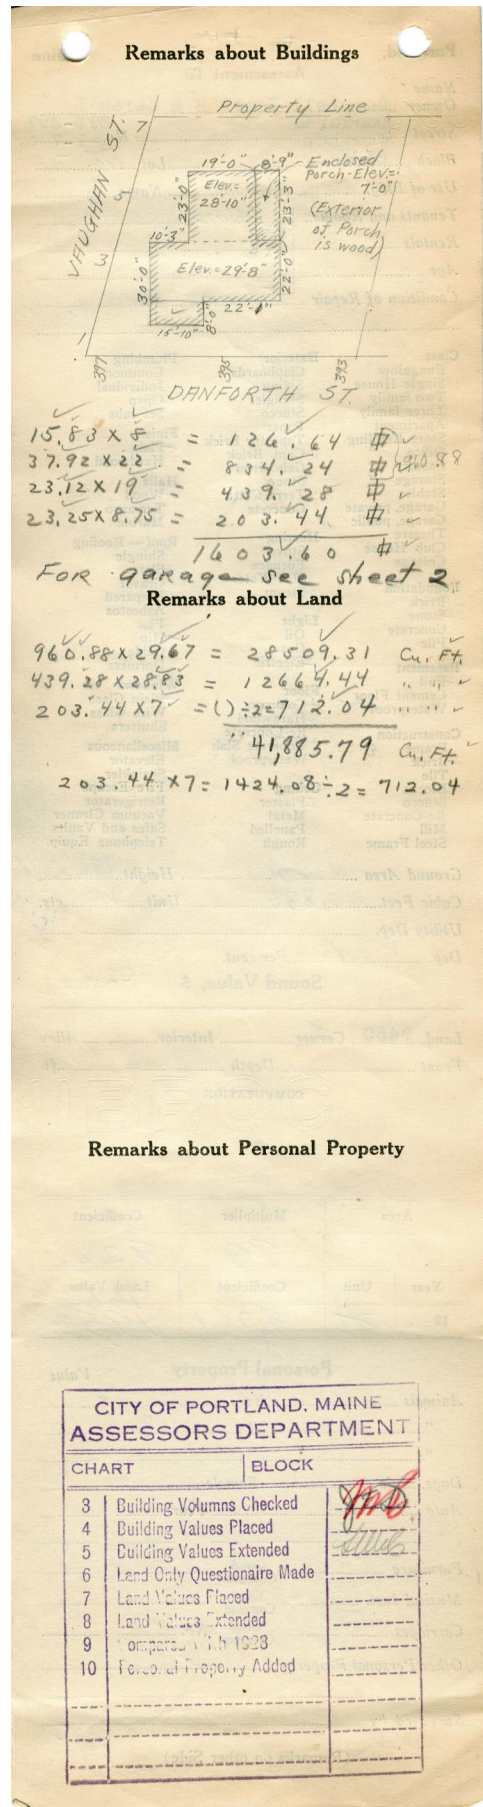 Remarks about Buildings
Property Line
VAUGHAN ST.
7
5
3
1
19'-0" 8'-9" Enclosed
Porch-Elev.=
7'-0"
(Exterior
of Porch
is wood)
Elev.=
28'-10"
23'-0"
23'-3"
10'-3"
Elev.=29'-8"
30'-0"
22'-0"
22'-1"
8'-0"
15'-10"
397
395
393
DANFORTH ST.
15.83 X 8 = 126.64
37.92 X 22 = 834.24 960.88
23.12 X 19 = 439.28
23.25 X 8.75 = 203.44
1603.60
FOR garage see sheet 2
Remarks about Land
960.88 X 29.67 = 28509.31 Cu. Ft.
439.28 X 28.83 = 12664.44 " "
203.44 X 7 = ( ) ÷2=712.04 " "
41,885.79 Cu. Ft.
203.44 X 7 = 1424.08 ÷ 2 = 712.04
Remarks about Personal Property
CITY OF PORTLAND, MAINE
ASSESSORS DEPARTMENT
CHART BLOCK
3 Building Volumns Checked
4 Building Values Placed
5 Building Values Extended
6 Land Only Questionaire Made
7 Land Values Placed
8 Land Values Extended
9 Compared With 1923
10 Personal Property Added